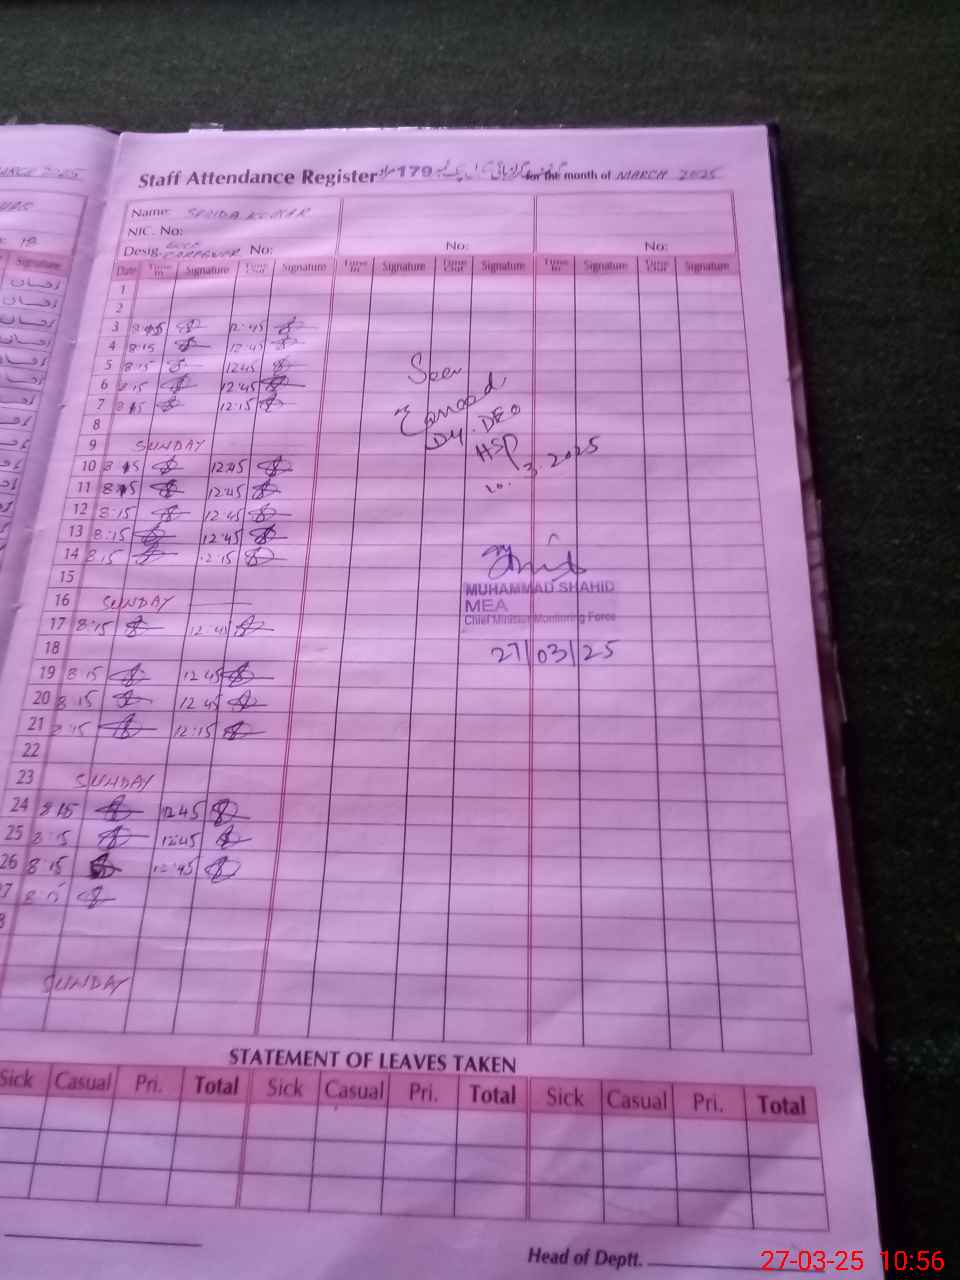 Staff Attendance Register 179 for the month of MARCH 2025
Name: KUMAR
NIC. No:
Desig. CAREGIVER No: No: No:
Date Time In Signature Time Out Signature Time In Signature Time Out Signature Time In Signature Time Out Signature
1
2
3 8:15 12:45
4 8:15 12:45
5 8:15 12:45
6 8:15 12:45
7 8:15 12:15
8
9 SUNDAY
10 8:15 12:45
11 8:15 12:45
12 8:15 12:45
13 8:15 12:45
14 8:15 12:15
15
16 SUNDAY
17 8:15 12:45
18
19 8:15 12:45
20 8:15 12:45
21 8:15 12:15
22
23 SUNDAY
24 8:15 12:45
25 8:15 12:45
26 8:15 12:45
7 8:15
SUNDAY
Seen
Dy. DEO
HSP
10.3.2025
MUHAMMAD SHAHID
MEA
Chief Minister Monitoring Force
27/03/25
STATEMENT OF LEAVES TAKEN
Sick Casual Pri. Total Sick Casual Pri. Total Sick Casual Pri. Total
Head of Deptt.
27-03-25 10:56